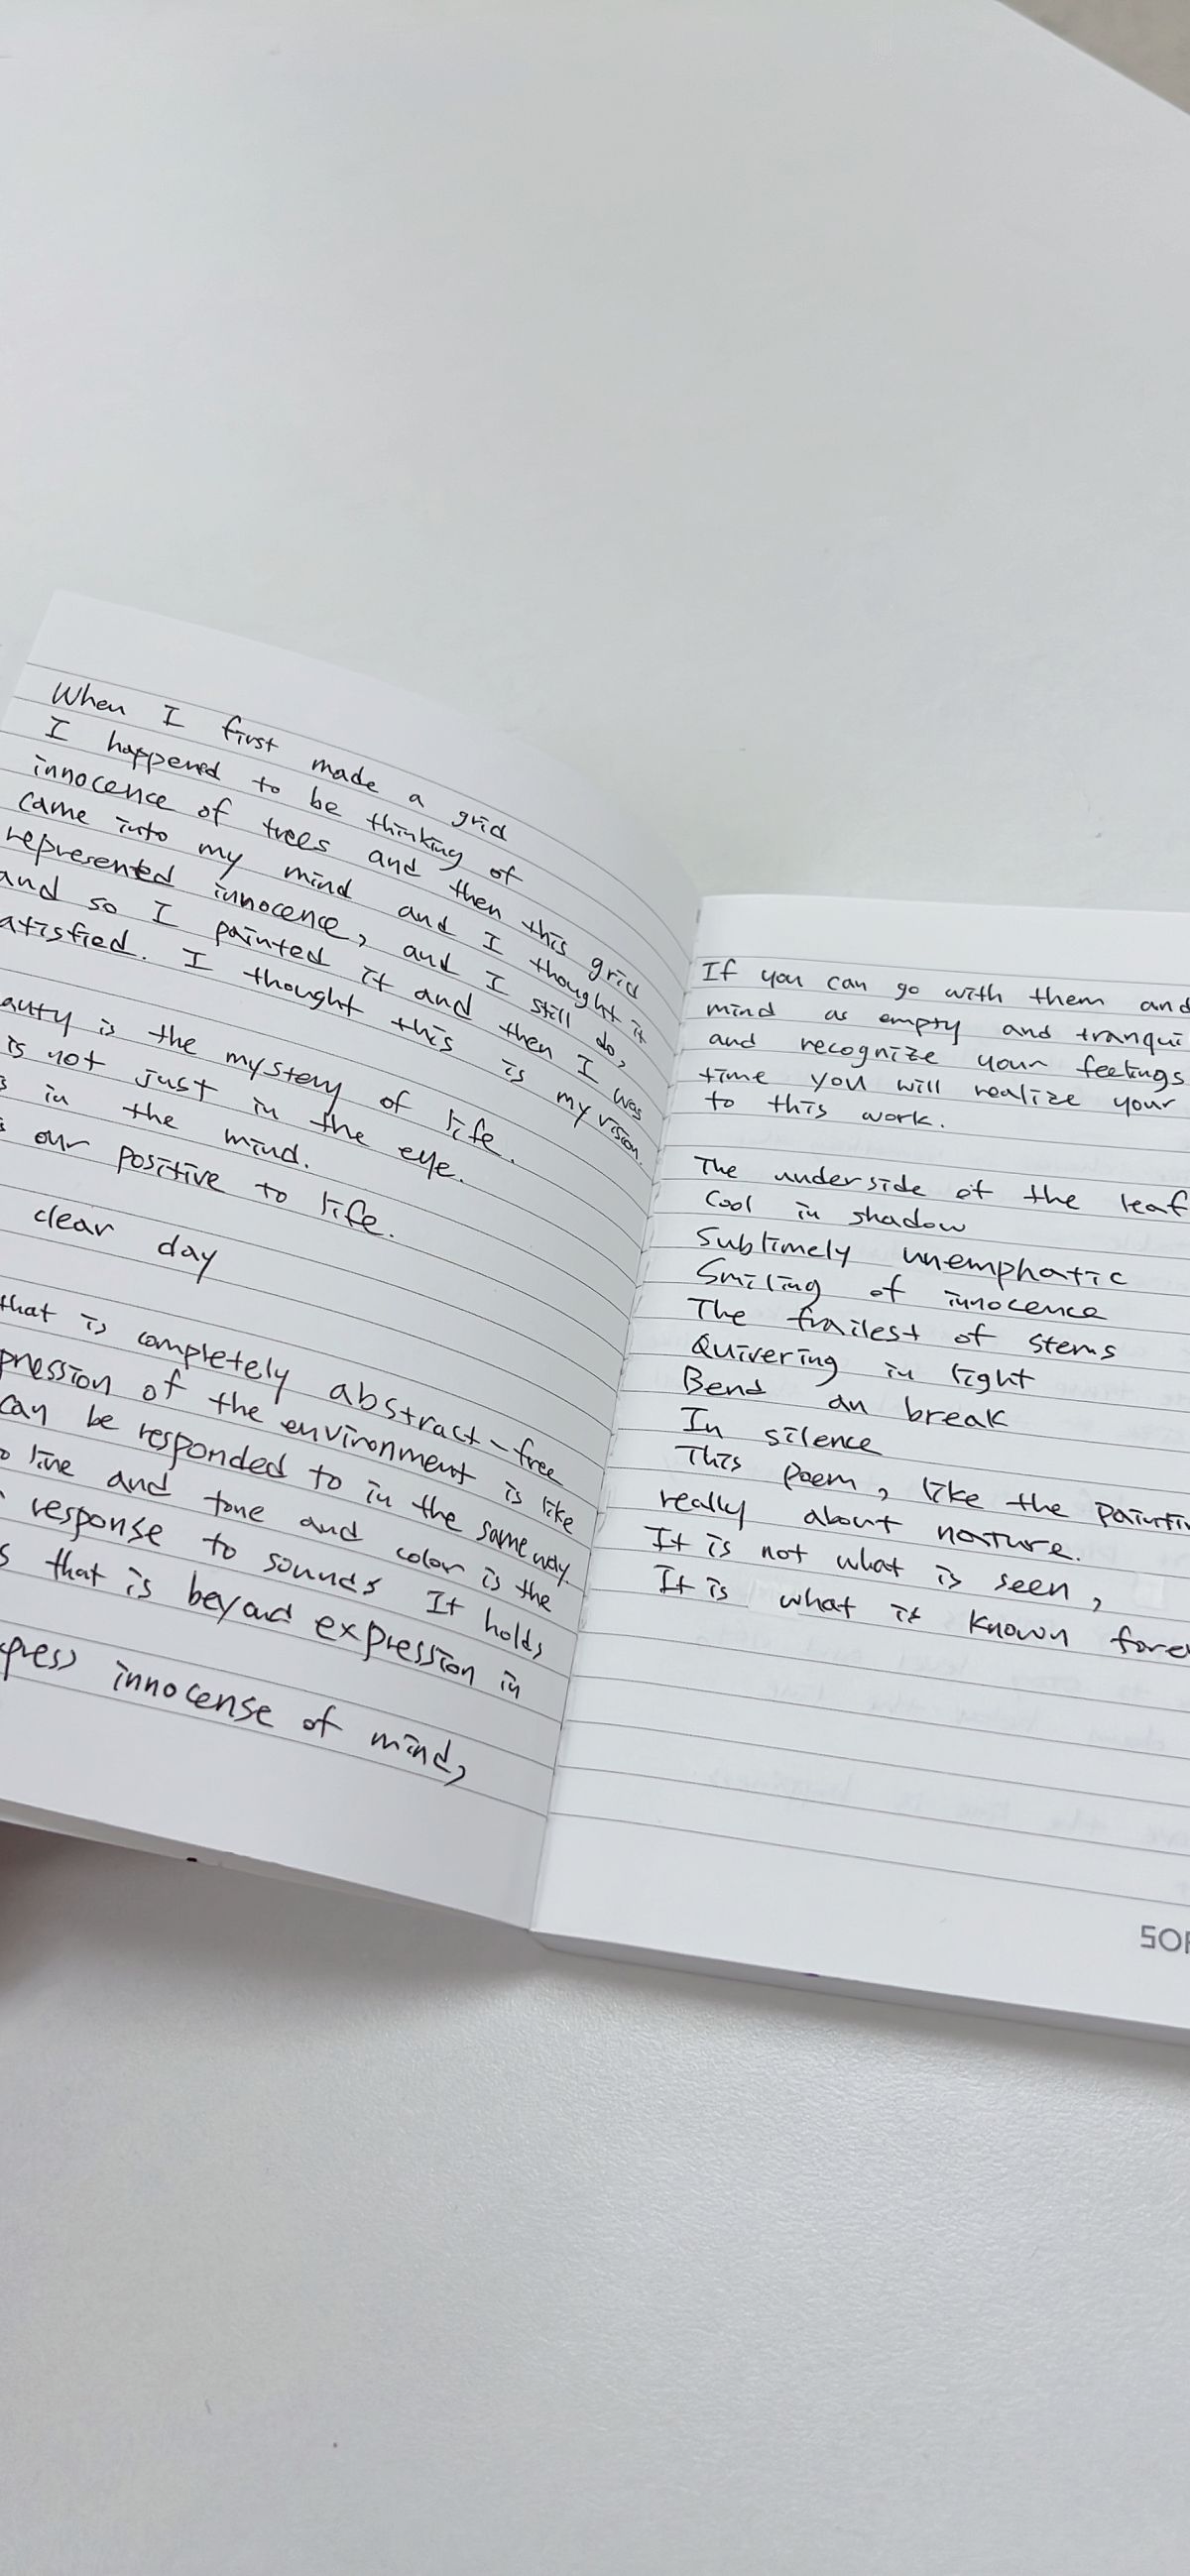 When I first made a grid
I happened to be thinking of
innocence of trees and then this grid
came into my mind and I thought it
represented innocence, and I still do,
and so I painted it and then I was
atisfied. I thought this is my vision.
auty is the mystery of life.
is not just in the eye.
s in the mind.
s our positive to life.
clear day
that is completely abstract-free
pression of the environment is like
can be responded to in the same way.
o line and tone and color is the
response to sounds It holds
s that is beyond expression in
press innocense of mind,
If you can go with them and
mind as empty and tranqui
and recognize your feelings
time you will realize your
to this work.
The underside of the leaf
Cool in shadow
Sublimely unemphatic
Smiling of innocence
The frailest of stems
Quivering in light
Bend an break
In silence
This poem, like the painti
really about nature.
It is not what is seen,
It is what it known fore
SO